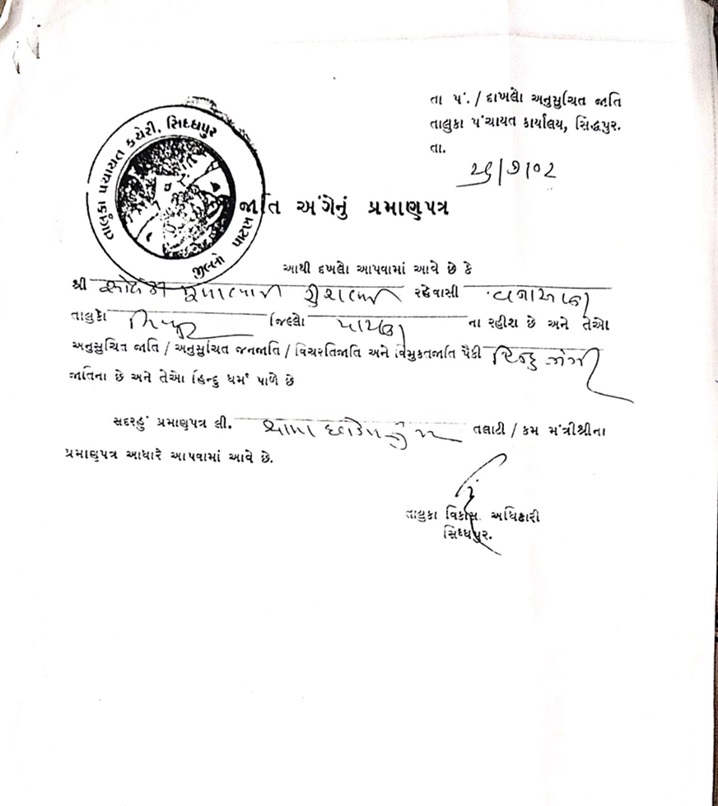 તા પં. / દાખલો અનુસુચિત જાતિ
તાલુકા પંચાયત કાર્યાલય, સિદ્ધપુર.
તા.
૨૬/૭/૦૨
તાલુકા પંચાયત કચેરી, સિધ્ધપુર
જીલ્લો પાટણ
જાતિ અંગેનું પ્રમાણપત્ર
આથી દાખલો આપવામાં આવે છે કે
શ્રી રહેવાસી
તાલુકો જિલ્લો પાટણ ના રહીશ છે અને તેઓ
અનુસુચિત જાતિ / અનુસુચિત જનજાતિ / વિચરતિજાતિ અને વિમુકતજાતિ પૈકી હિન્દુ
જાતિના છે અને તેઓ હિન્દુ ધર્મ પાળે છે
સદરહું પ્રમાણપત્ર લી. તલાટી / કમ મંત્રીશ્રીના
પ્રમાણપત્ર આધારે આપવામાં આવે છે.
તાલુકા વિકાસ અધિકારી
સિધ્ધપુર.